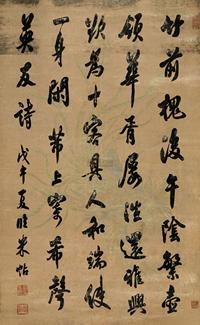 竹前槐後午陰繁壺
領華胥屢往還雅興
歘為中客具人和端使
一身閒帶上寄希聲
英友詩 戊午夏臨米帖